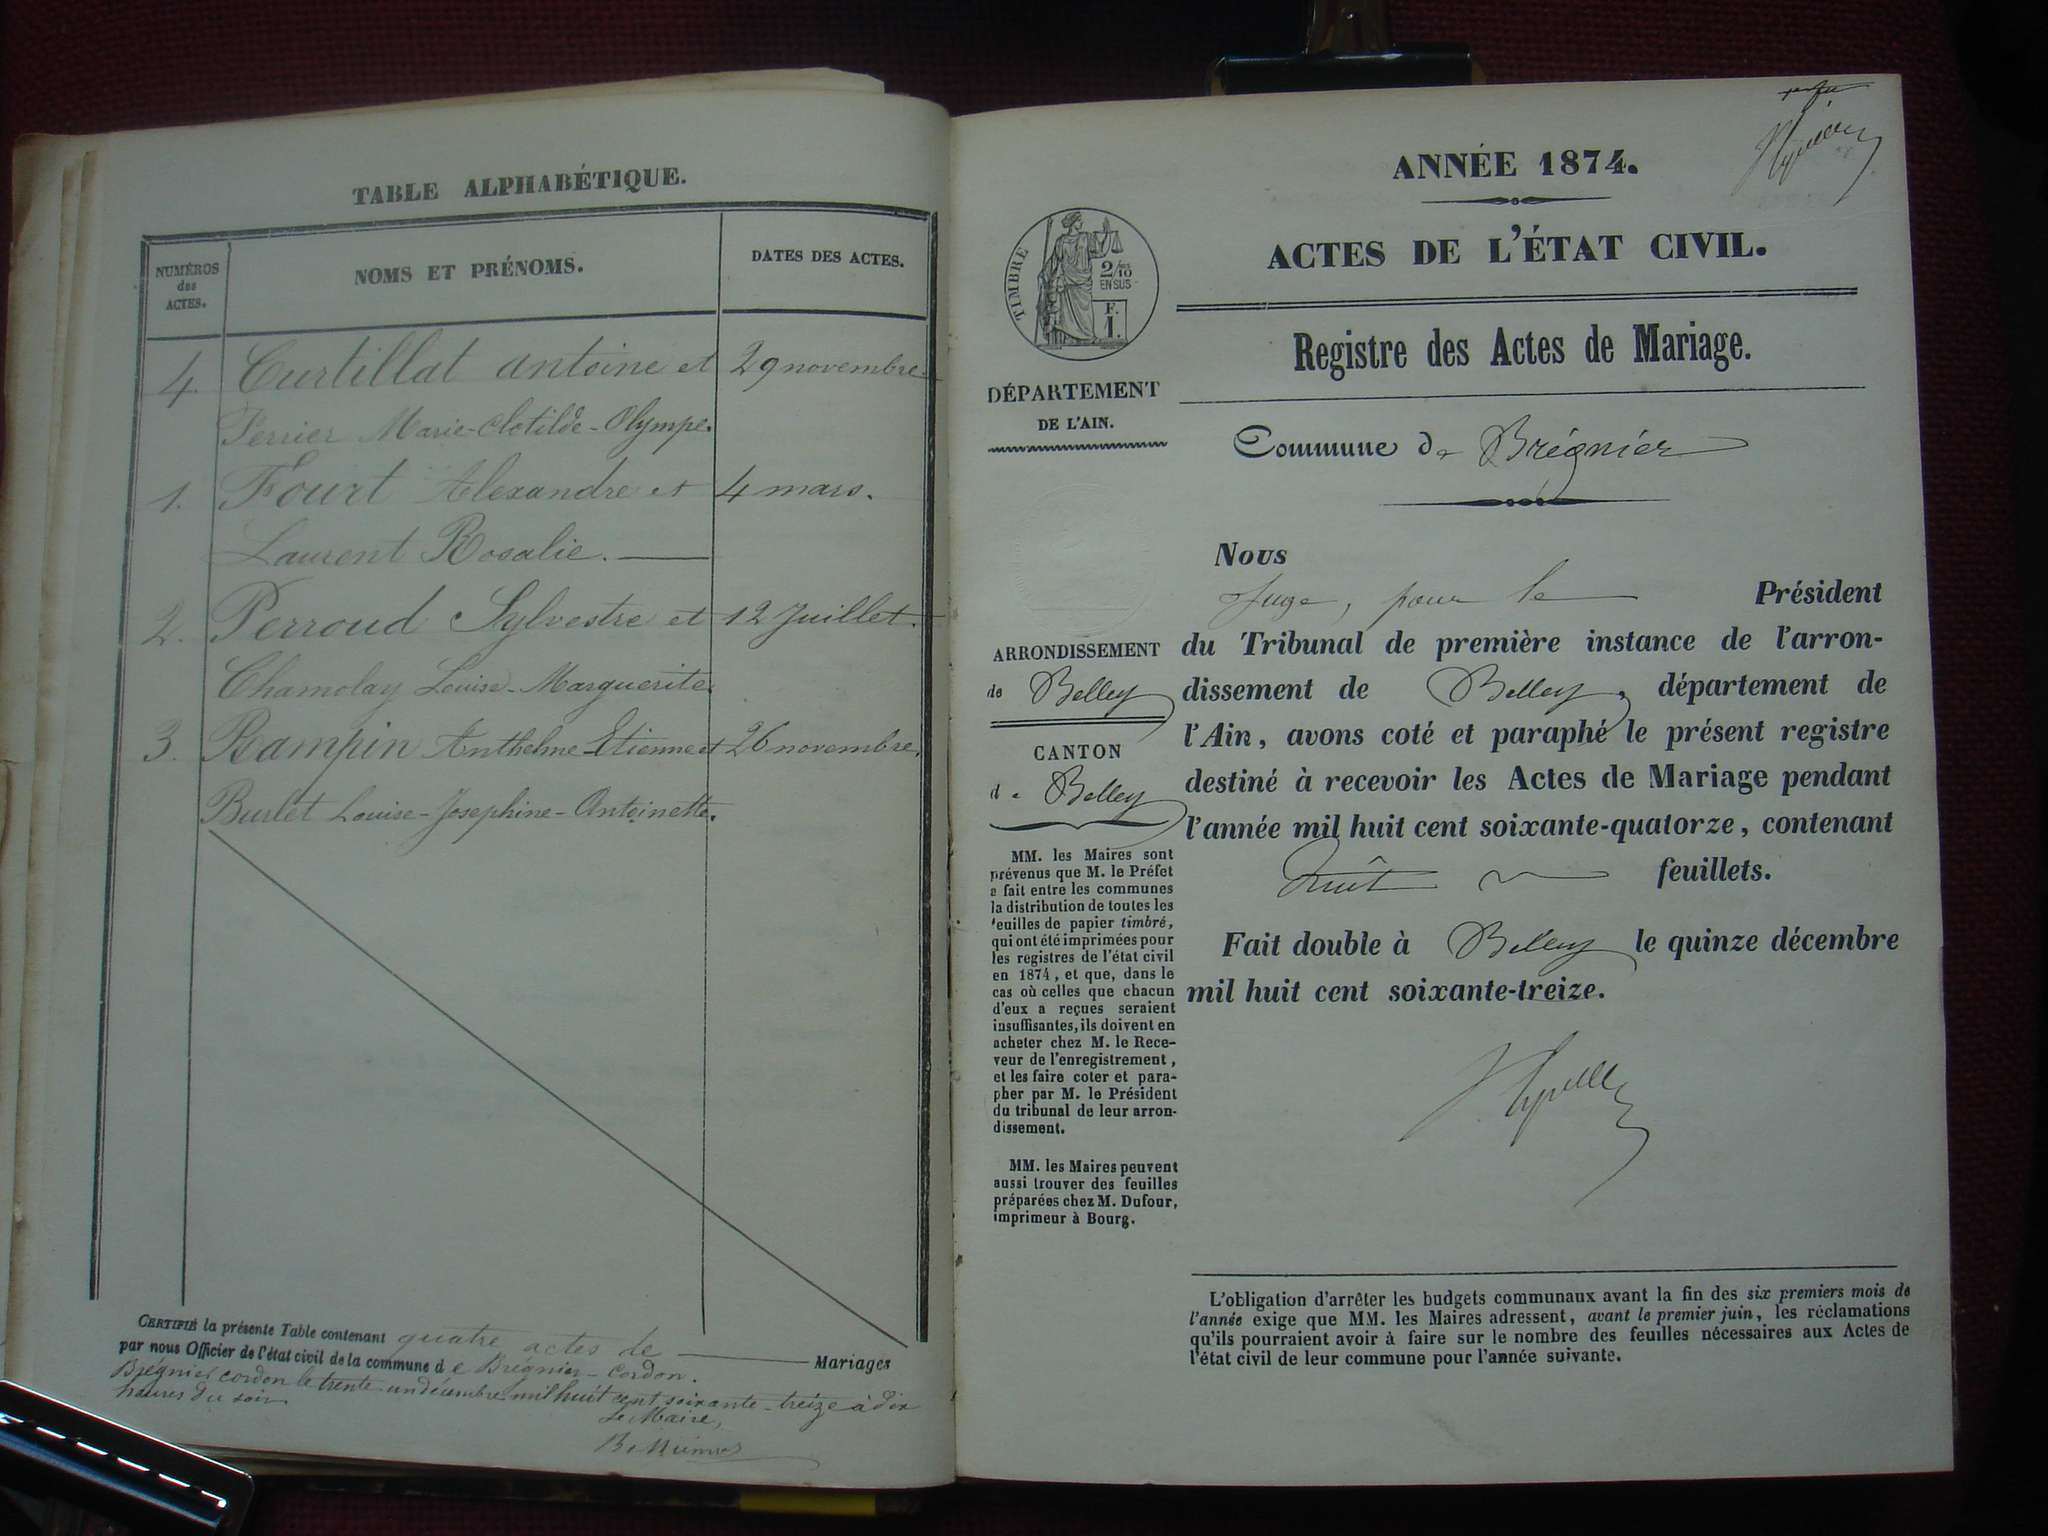 TABLE ALPHABÉTIQUE.
NUMÉROS
des
ACTES.
NOMS ET PRÉNOMS.
DATES DES ACTES.
4. Curtillat Antoine et 29 novembre
Perrier Marie-Clotilde-Olympe.
1. Fourt Alexandre et 4 mars.
Laurent Rosalie.
2. Perroud Sylvestre et 12 Juillet.
Chamolay Louise-Marguerite.
3. Rampin Anthelme-Etienne et 26 novembre.
Burlet Louise-Josephine-Antoinette.
CERTIFIÉ la présente Table contenant quatre actes de Mariages
par nous Officier de l'état civil de la commune de Brégnier-Cordon.
Brégnier cordon le trente-un décembre mil huit cent soixante-treize à dix
heures du soir
Le Maire,
ANNÉE 1874.
ACTES DE L'ÉTAT CIVIL.
TIMBRE
2/10
EN SUS
F.
1.
Registre des Actes de Mariage.
DÉPARTEMENT
DE L'AIN.
Commune de Brégnier
Nous
Juge, pour le Président
du Tribunal de première instance de l'arron-
dissement de Belley, département de
l'Ain, avons coté et paraphé le présent registre
destiné à recevoir les Actes de Mariage pendant
l'année mil huit cent soixante-quatorze, contenant
huit feuillets.
Fait double à Belley le quinze décembre
mil huit cent soixante-treize.
ARRONDISSEMENT
de Belley
CANTON
de Belley
MM. les Maires sont
prévenus que M. le Préfet
a fait entre les communes
la distribution de toutes les
feuilles de papier timbré,
qui ont été imprimées pour
les registres de l'état civil
en 1874, et que, dans le
cas où celles que chacun
d'eux a reçues seraient
insuffisantes, ils doivent en
acheter chez M. le Rece-
veur de l'enregistrement,
et les faire coter et para-
pher par M. le Président
du tribunal de leur arron-
dissement.
MM. les Maires peuvent
aussi trouver des feuilles
préparées chez M. Dufour,
imprimeur à Bourg.
L'obligation d'arrêter les budgets communaux avant la fin des six premiers mois de
l'année exige que MM. les Maires adressent, avant le premier juin, les réclamations
qu'ils pourraient avoir à faire sur le nombre des feuilles nécessaires aux Actes de
l'état civil de leur commune pour l'année suivante.